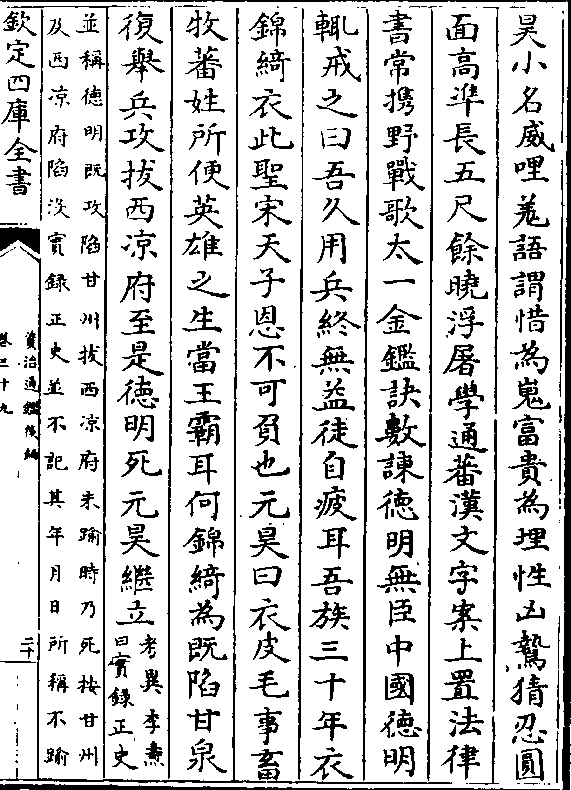 昊小名威哩羌語謂惜為嵬富貴為埋性凶鷙猜忍圓
面高準長五尺餘曉浮屠學通蕃漢文字案上置法律
書常攜野戰歌太一金鑑訣數諫德明無臣中國德明
輒戒之曰吾久用兵終無益徒自疲耳吾族三十年衣
錦綺衣此聖宋天子恩不可負也元昊曰衣皮毛事畜
牧蕃姓所便英雄之生當王霸耳何錦綺為既陷甘泉
復舉兵攻拔西凉府至是德明死元昊繼立考異李燾
曰實錄正史
並稱德明既攻陷甘州拔西凉府未踰時乃死按甘州
及西凉府陷沒實錄正史並不記其年月日所稱不踰
欽定四庫全書
資治通鑑後編
卷三十九
二十